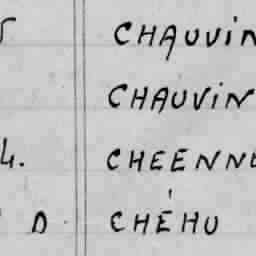 CHAUVIN
CHAUVIN
4. CHEENNE
D CHÉHU